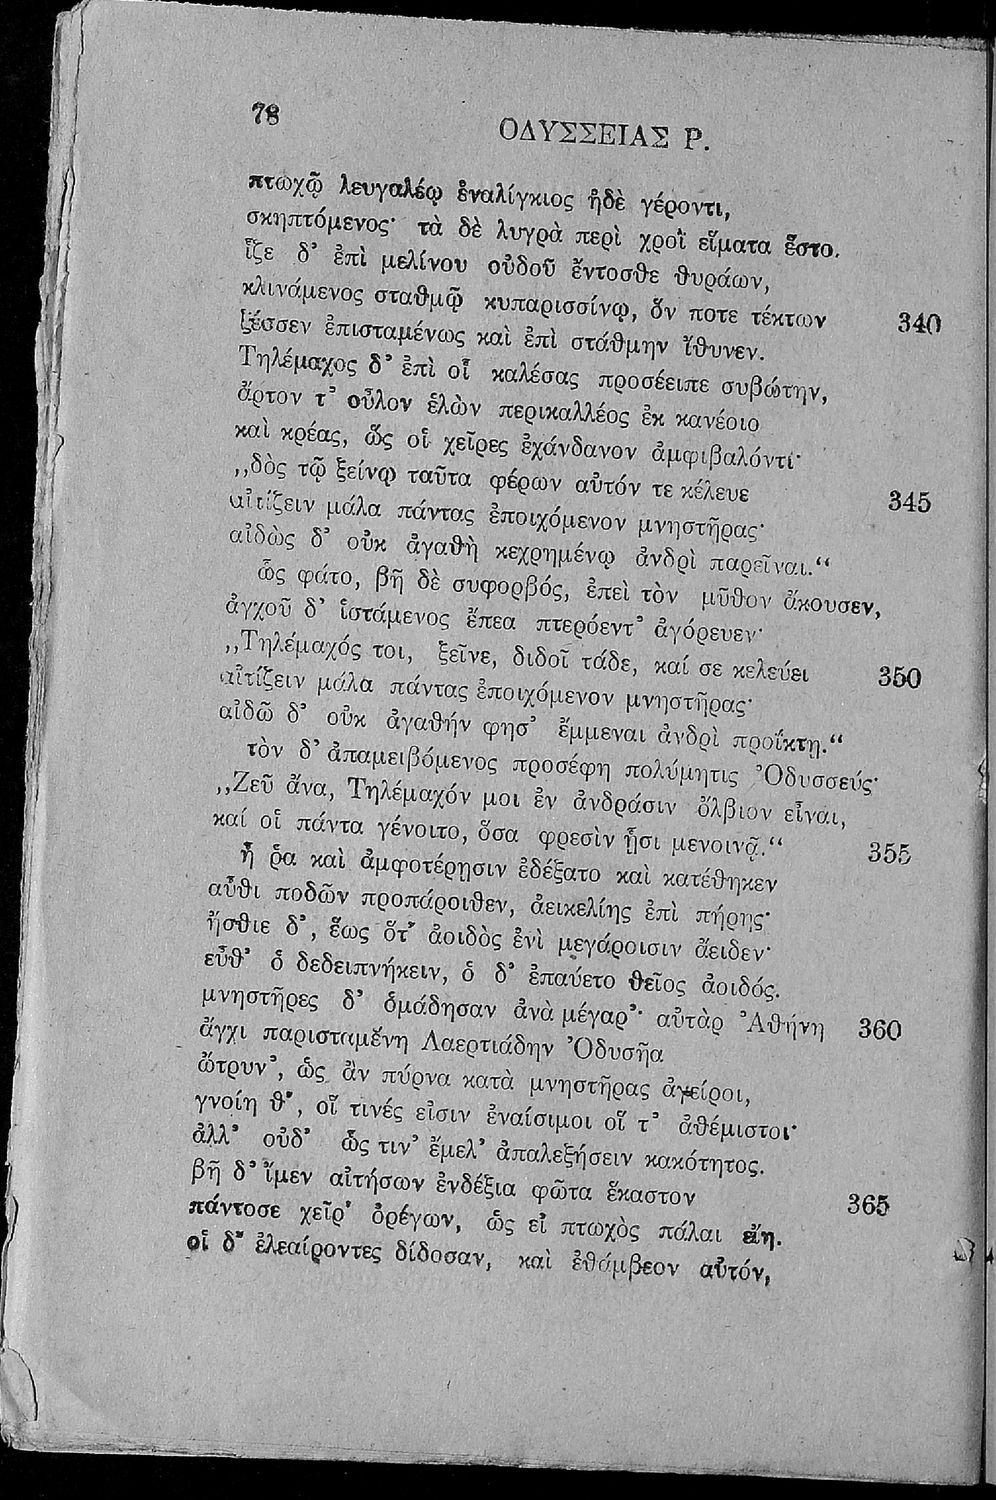 78
ΟΔΥΣΣΕΙΑΣ Ρ.
πτωχῷ λευγαλέῳ ἐναλίγκιος ἠδὲ γέροντι,
σκηπτόμενος· τὰ δὲ λυγρὰ περὶ χροῒ εἵματα ἕστο.
ἷζε δ' ἐπὶ μελίνου οὐδοῦ ἔντοσθε θυράων,
κλινάμενος σταθμῷ κυπαρισσίνῳ, ὅν ποτε τέκτων 340
ξέσσεν ἐπισταμένως καὶ ἐπὶ στάθμην ἴθυνεν.
Τηλέμαχος δ' ἐπὶ οἷ καλέσας προσέειπε συβώτην,
ἄρτον τ' οὖλον ἑλὼν περικαλλέος ἐκ κανέοιο
καὶ κρέας, ὥς οἱ χεῖρες ἐχάνδανον ἀμφιβαλόντι·
„δὸς τῷ ξείνῳ ταῦτα φέρων αὐτόν τε κέλευε 345
αἰτίζειν μάλα πάντας ἐποιχόμενον μνηστῆρας·
αἰδὼς δ' οὐκ ἀγαθὴ κεχρημένῳ ἀνδρὶ παρεῖναι.“
ὣς φάτο, βῆ δὲ συφορβός, ἐπεὶ τὸν μῦθον ἄκουσεν,
ἀγχοῦ δ' ἱστάμενος ἔπεα πτερόεντ' ἀγόρευεν·
„Τηλέμαχός τοι, ξεῖνε, διδοῖ τάδε, καί σε κελεύει 350
αἰτίζειν μάλα πάντας ἐποιχόμενον μνηστῆρας·
αἰδῶ δ' οὐκ ἀγαθήν φησ' ἔμμεναι ἀνδρὶ προΐκτῃ.“
τὸν δ' ἀπαμειβόμενος προσέφη πολύμητις Ὀδυσσεύς·
„Ζεῦ ἄνα, Τηλέμαχόν μοι ἐν ἀνδράσιν ὄλβιον εἶναι,
καί οἱ πάντα γένοιτο, ὅσα φρεσὶν ᾗσι μενοινᾷ.“ 355
ἦ ῥα καὶ ἀμφοτέρῃσιν ἐδέξατο καὶ κατέθηκεν
αὖθι ποδῶν προπάροιθεν, ἀεικελίης ἐπὶ πήρης·
ἤσθιε δ', ἕως ὅτ' ἀοιδὸς ἐνὶ μεγάροισιν ἄειδεν·
εὖθ' ὁ δεδειπνήκειν, ὁ δ' ἐπαύετο θεῖος ἀοιδός.
μνηστῆρες δ' ὁμάδησαν ἀνὰ μέγαρ'· αὐτὰρ Ἀθήνη 360
ἄγχι παρισταμένη Λαερτιάδην Ὀδυσῆα
ὤτρυν', ὡς ἂν πύρνα κατὰ μνηστῆρας ἀγείροι,
γνοίη θ', οἵ τινές εἰσιν ἐναίσιμοι οἵ τ' ἀθέμιστοι·
ἀλλ' οὐδ' ὧς τιν' ἔμελ' ἀπαλεξήσειν κακότητος.
βῆ δ' ἴμεν αἰτήσων ἐνδέξια φῶτα ἕκαστον 365
πάντοσε χεῖρ' ὀρέγων, ὡς εἰ πτωχὸς πάλαι εἴη.
οἱ δ' ἐλεαίροντες δίδοσαν, καὶ ἐθάμβεον αὐτόν,